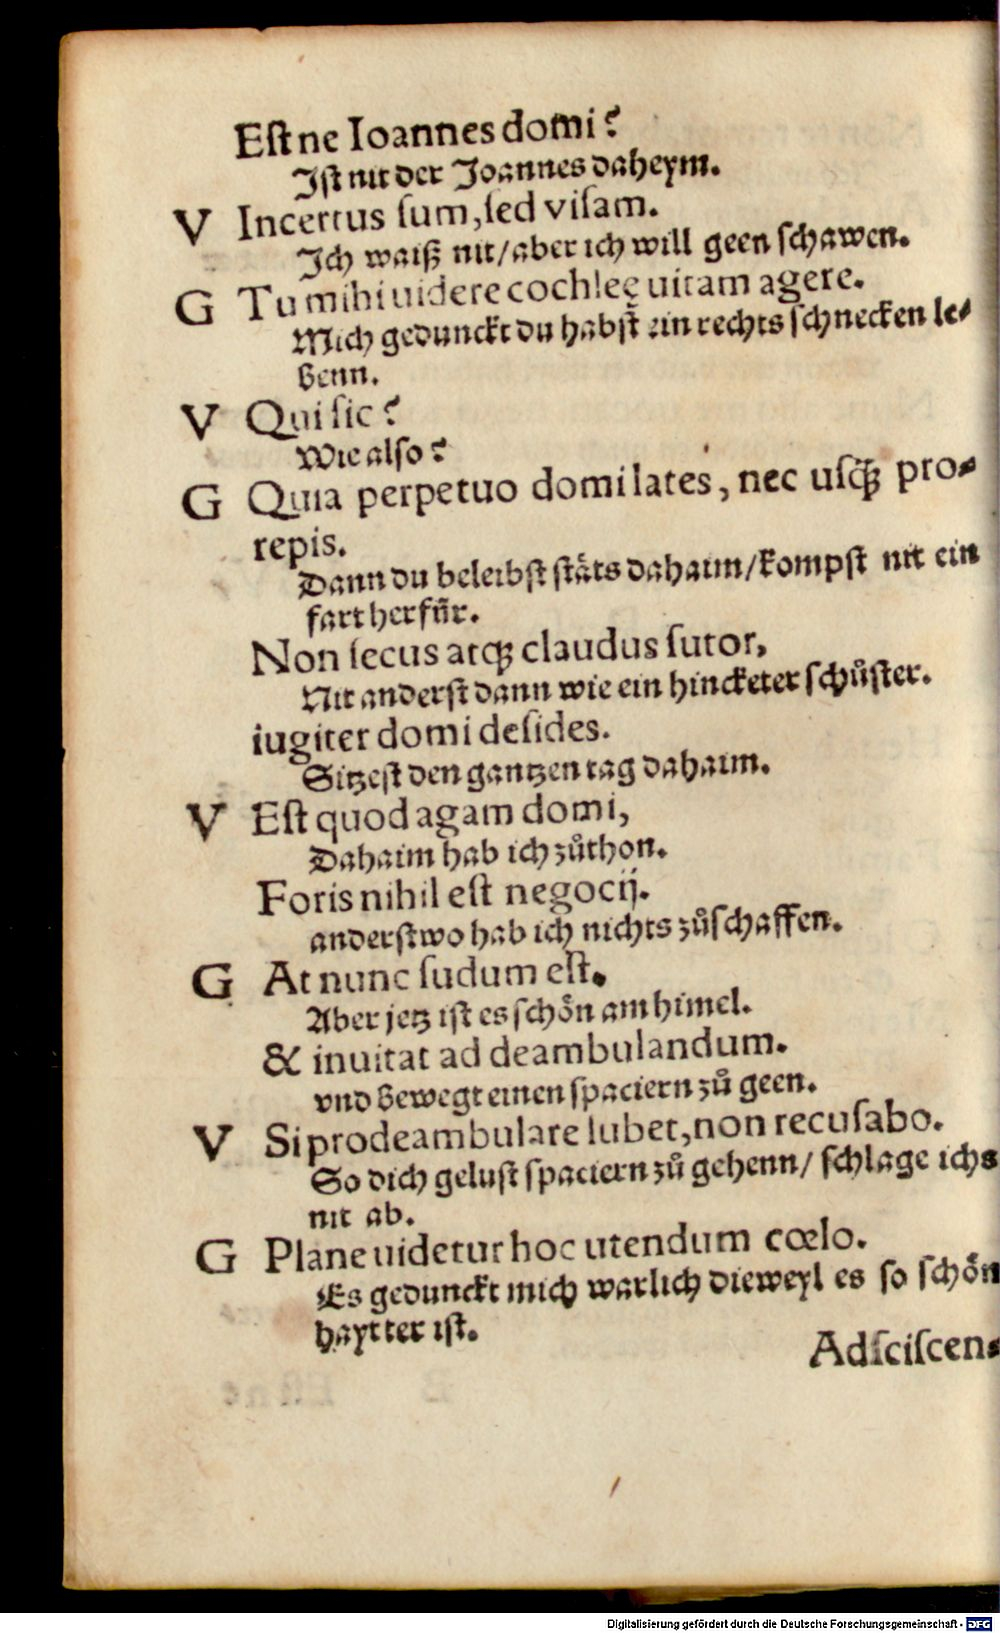 Eſtne Ioannes domi?
Jſt nit der Joannes daheym.
V Incertus ſum, ſed viſam.
Jch waiß nit/aber ich will geen ſchawen.
G Tu mihi uidere cochleę uitam agere.
Mich gedunckt du habſt ein rechts ſchnecken le-
benn.
V Qui ſic?
Wie alſo?
G Quia perpetuo domi lates, nec uſqꝫ pro-
repis.
Dann du beleibſt ſtäts dahaim/kompſt nit ein
fart herfür.
Non ſecus atqꝫ claudus ſutor,
Nit anderſt dann wie ein hincketer ſchůſter.
iugiter domi deſides.
Sitzeſt den gantzen tag dahaim.
V Eſt quod agam domi,
Dahaim hab ich zůthon.
Foris nihil eſt negocij.
anderſtwo hab ich nichts zůſchaffen.
G At nunc ſudum eſt.
Aber jetz iſt es ſchön am himel.
& inuitat ad deambulandum.
vnd bewegt einen ſpaciern zů geen.
V Si prodeambulare lubet, non recuſabo.
So dich geluſt ſpaciern zů gehenn/ ſchlage ichs
nit ab.
G Plane uidetur hoc utendum cœlo.
Es gedunckt mich warlich dieweyl es ſo ſchön
haytter iſt.
Adſciſcen-
Digitalisierung gefördert durch die Deutsche Forschungsgemeinschaft - DFG